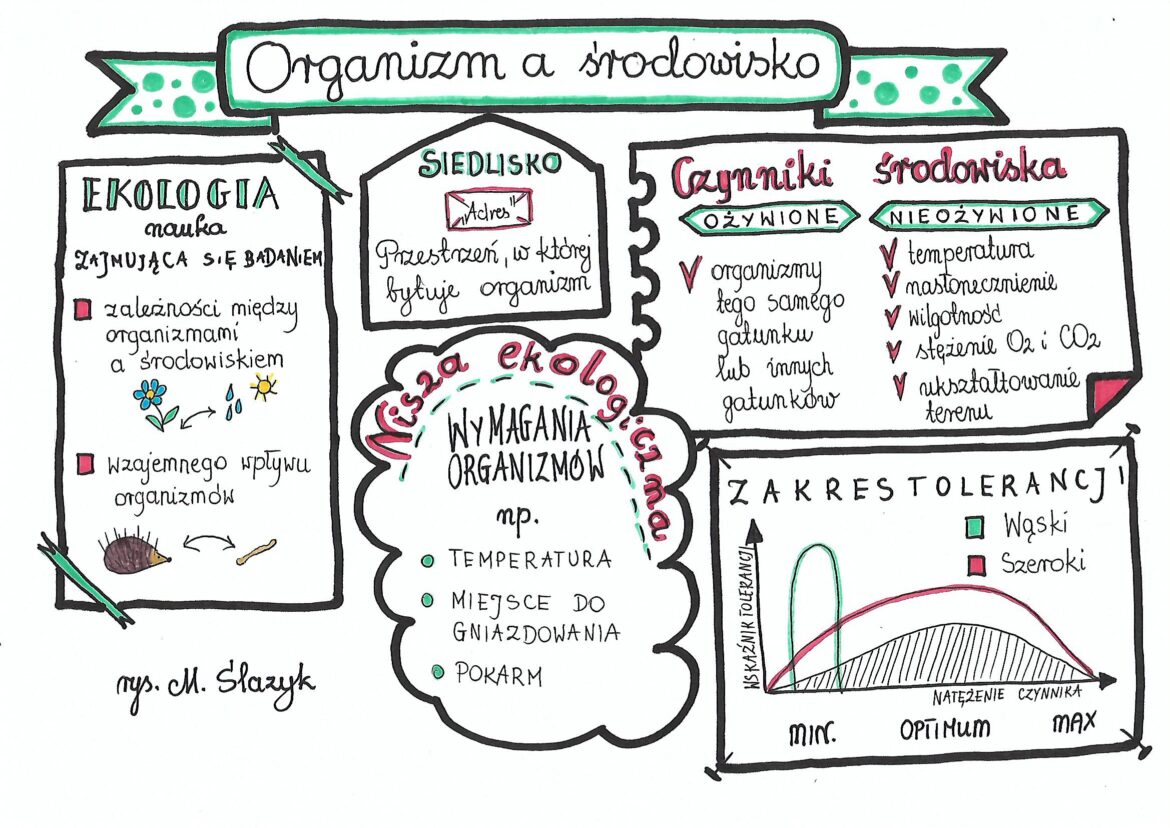 Organizm a środowisko
EKOLOGIA
nauka
ZAJMUJĄCA SIĘ BADANIEM
zależności między
organizmami
a środowiskiem
wzajemnego wpływu
organizmów
rys. M. Ślazyk
SIEDLISKO
"Adres"
Przestrzeń, w której
bytuje organizm
Nisza ekologiczna
WYMAGANIA
ORGANIZMÓW
np.
TEMPERATURA
MIEJSCE DO
GNIAZDOWANIA
POKARM
Czynniki środowiska
OŻYWIONE
organizmy
tego samego
gatunku
lub innych
gatunków
NIEOŻYWIONE
temperatura
nasłonecznienie
wilgotność
stężenie O2 i CO2
ukształtowanie
terenu
ZAKRES TOLERANCJI
Wąski
Szeroki
WSKAŹNIK TOLERANCJI
NATĘŻENIE CZYNNIKA
MIN. OPTIMUM MAX